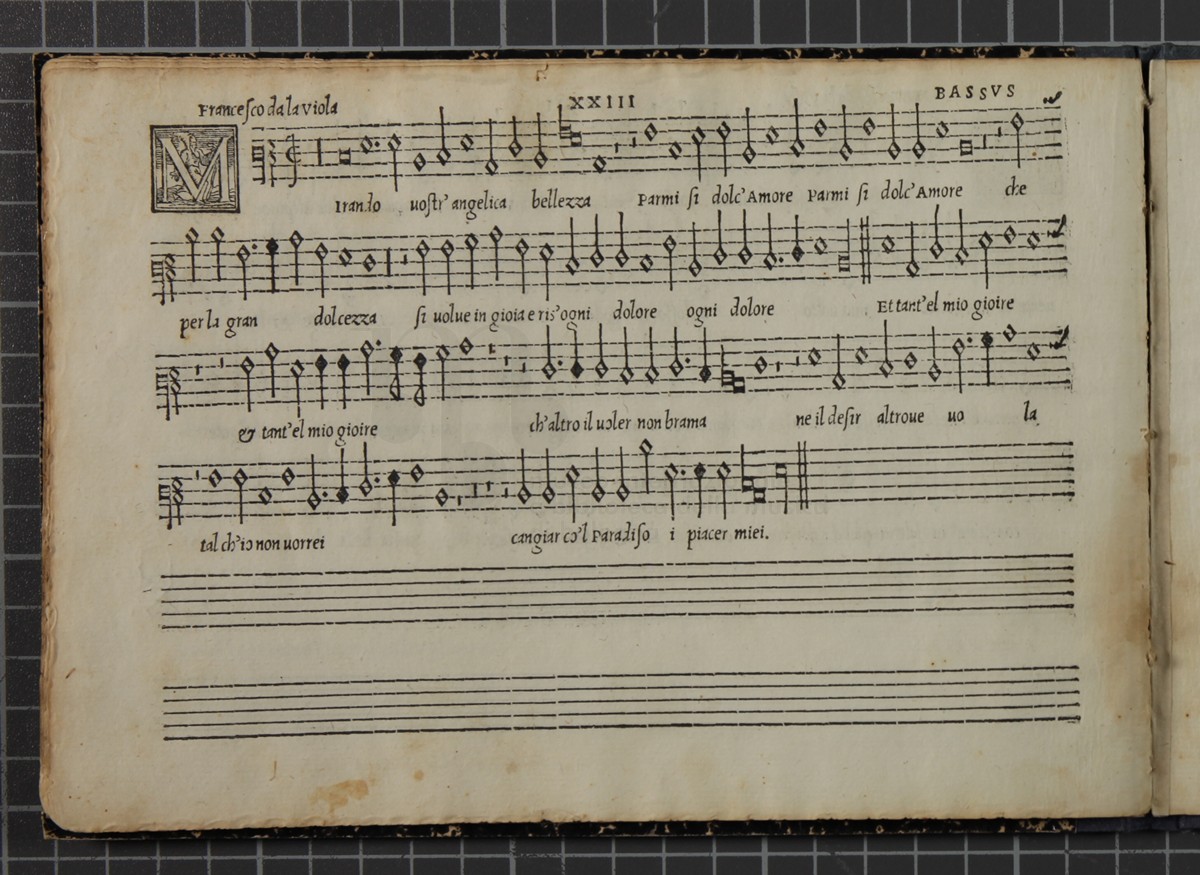 Francesco da la Viola XXIII BASSVS
MIrando uostr' angelica bellezza Parmi si dolc' Amore Parmi si dolc' Amore che
per la gran dolcezza si uolue in gioia e ris' ogni dolore ogni dolore Et tant' el mio gioire
& tant' el mio gioire ch' altro il uoler non brama ne il desir altroue uo la
tal ch' io non uorrei cangiar co'l Paradiso i piacer miei.